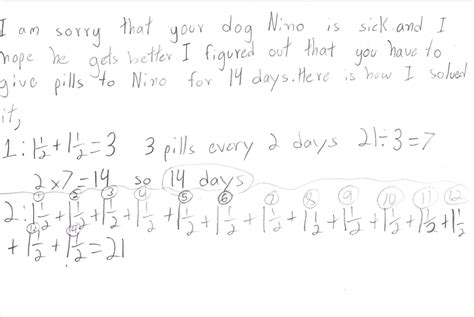 I am sorry that your dog Nino is sick and I
hope he gets better. I figured out that you have to
give pills to Nino for 14 days. Here is how I solved
it,
1: 1 1/2 + 1 1/2 = 3 3 pills every 2 days 21÷3=7
2×7=14 so 14 days
1 2 3 4 5 6 7 8 9 10 11 12
2: 1 1/2 + 1 1/2 + 1 1/2 + 1 1/2 + 1 1/2 + 1 1/2 + 1 1/2 + 1 1/2 + 1 1/2 + 1 1/2 + 1 1/2 + 1 1/2
+ 1 1/2 + 1 1/2 = 21